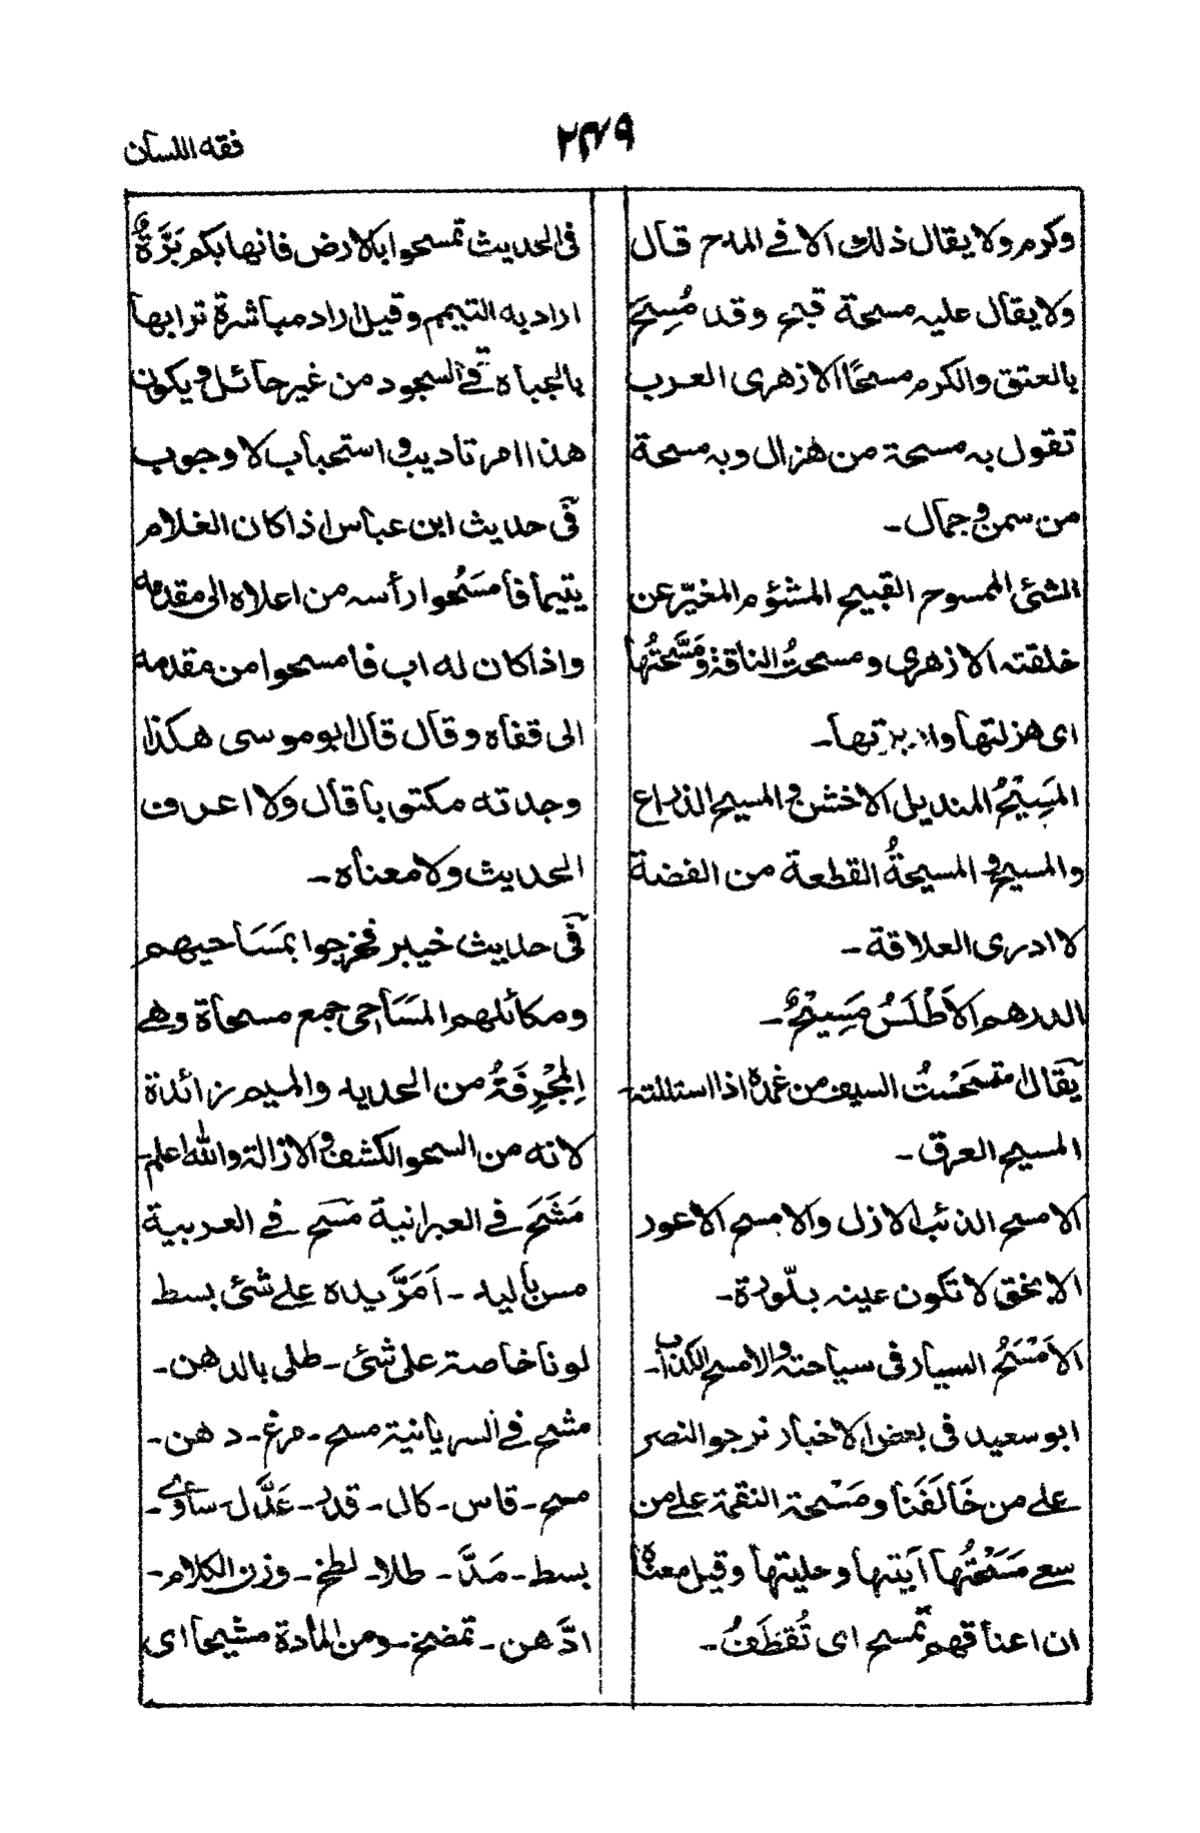 ۲۴۹
فقه اللسان
وكرم ولا يقال ذلك الا فى المدح قال
ولا يقال عليه مسحة قبح وقد مُسِحَ
بالعتق والكرم مسحًا الازهرى العرب
تقول به مسحة من هزال وبه مسحة
من سمن و جمال -
الشئ الممسوح القبيح المشئوم المغيّر عن
خلقته الازهرى ومسحتُ الناقة ومَسَّحتُها
اى هزلتها وادبرتها -
المَسِيْحُ المنديل الاخشن و المسيح الذراع
والمسيح و المسيحةُ القطعة من الفضة
لا ادرى العلاقة -
الدرهم الاَطْلَسُ مَسِيْحٌ -
يقال امتسَحْتُ السيف من غمده اذا استللته -
المسيح العرق -
الامسح الذئب الازل والامسح الاعور
الابخق لا تكون عينه بلّورة -
الاَمْسَحُ السيار فى سياحته والامسح الكذاب -
ابو سعيد فى بعض الاخبار نرجو النصر
على من خَالَفَنا ومَسْحة النقمة على من
سعى مَسَحْتُها آيتها وحليتها وقيل معناه
ان اعناقهم تمسح اى تُقطَفُ -
فى الحديث تمسحوا بالارض فانها بكم بَرَّةٌ
اراد به التيمم وقيل اراد مباشرة ترابها
بالجباه فى السجود من غير حائل ويكون
هذا امر تاديب و استحباب لا وجوب
فى حديث ابن عباس اذا كان الغلام
يتيما فامسَحُوا رأسه من اعلاه الى مقدمه
واذا كان له اب فامسحوا من مقدمه
الى قفاه وقال قال ابو موسى هكذا
وجدته مكتوبا قال ولا اعرف
الحديث ولا معناه -
فى حديث خيبر فخرجوا بمَسَاحيهم
ومكائلهم المَسَاحى جمع مسحاة وهى
المِجْرِفَةُ من الحديد والميم زائدة
لانه من السحو الكشف والازالة والله اعلم -
مَشَحَ فى العبرانية مَسَحَ فى العربية
مسن باليد - اَمَرَّ يده على شئ بسط
لونا خاصة على شئ - طلى بالدهن -
مشح فى السريانية مسح - مرغ - دهن -
مسح - قاس - كال - قدر - عَدَّل - ساوى -
بسط - مَدَّ - طلا - لطخ - وزن الكلام -
ادَّهن - تمضخ - ومن المادة مشيحا اى